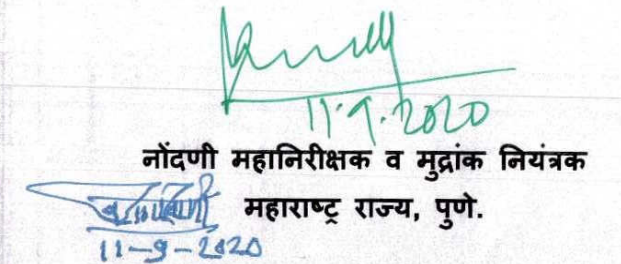 11.9.2020
नोंदणी महानिरीक्षक व मुद्रांक नियंत्रक
महाराष्ट्र राज्य, पुणे.
11-9-2020